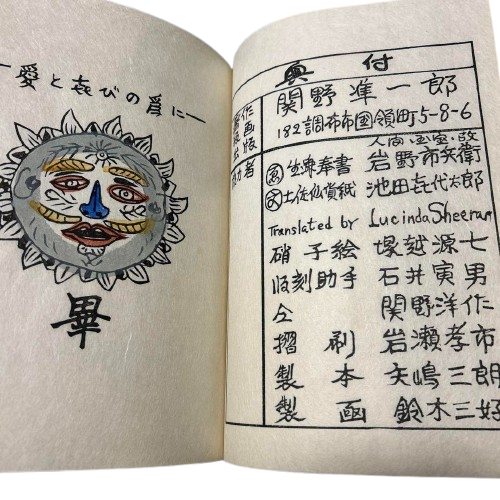 ―愛と㐂びの為に―
畢
奥付
関野凖一郎
182調布市国領町5-8-6
作画版
者
人間・国宝・故
生漉奉書 岩野市兵衛
土佐仙貨紙 池田㐂代太郎
Translated by Lucinda Sheeran
硝子絵 塚越源七
版刻助手 石井寅男
仝 関野洋作
摺刷 岩瀬孝市
製本 矢嶋三朗
製函 鈴木三好